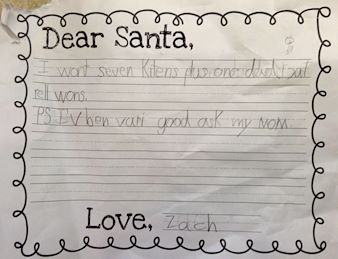 Dear Santa,
I wont seven Kitens plus one
rell wons.
PS I'V ben vari good ask my MOM.
Love, Zach